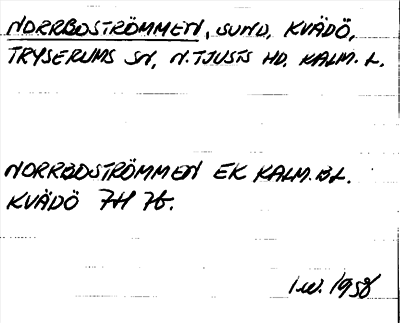 NORRBOSTRÖMMEN, SUND, KVÄDÖ,
TRYSERUMS SN, N. TJUSTS HD. KALM. L.
NORRBOSTRÖMMEN EK KALM. BL.
KVÄDÖ 7H 7b.
I.W. 1958